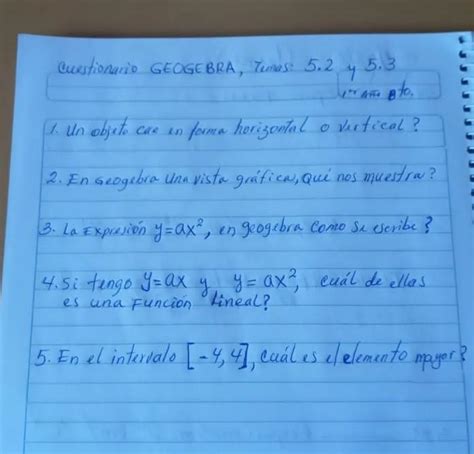 Cuestionario GEOGEBRA, Temas: 5.2 y 5.3
1er Año Bto.
1. Un objeto cae en forma horizontal o vertical?
2. En Geogebra una vista gráfica, qué nos muestra?
3. La Expresión y=ax², en geogebra como se escribe?
4. Si tengo y=ax y y=ax², cuál de ellas
es una Función lineal?
5. En el intervalo [-4,4], cuál es el elemento mayor?